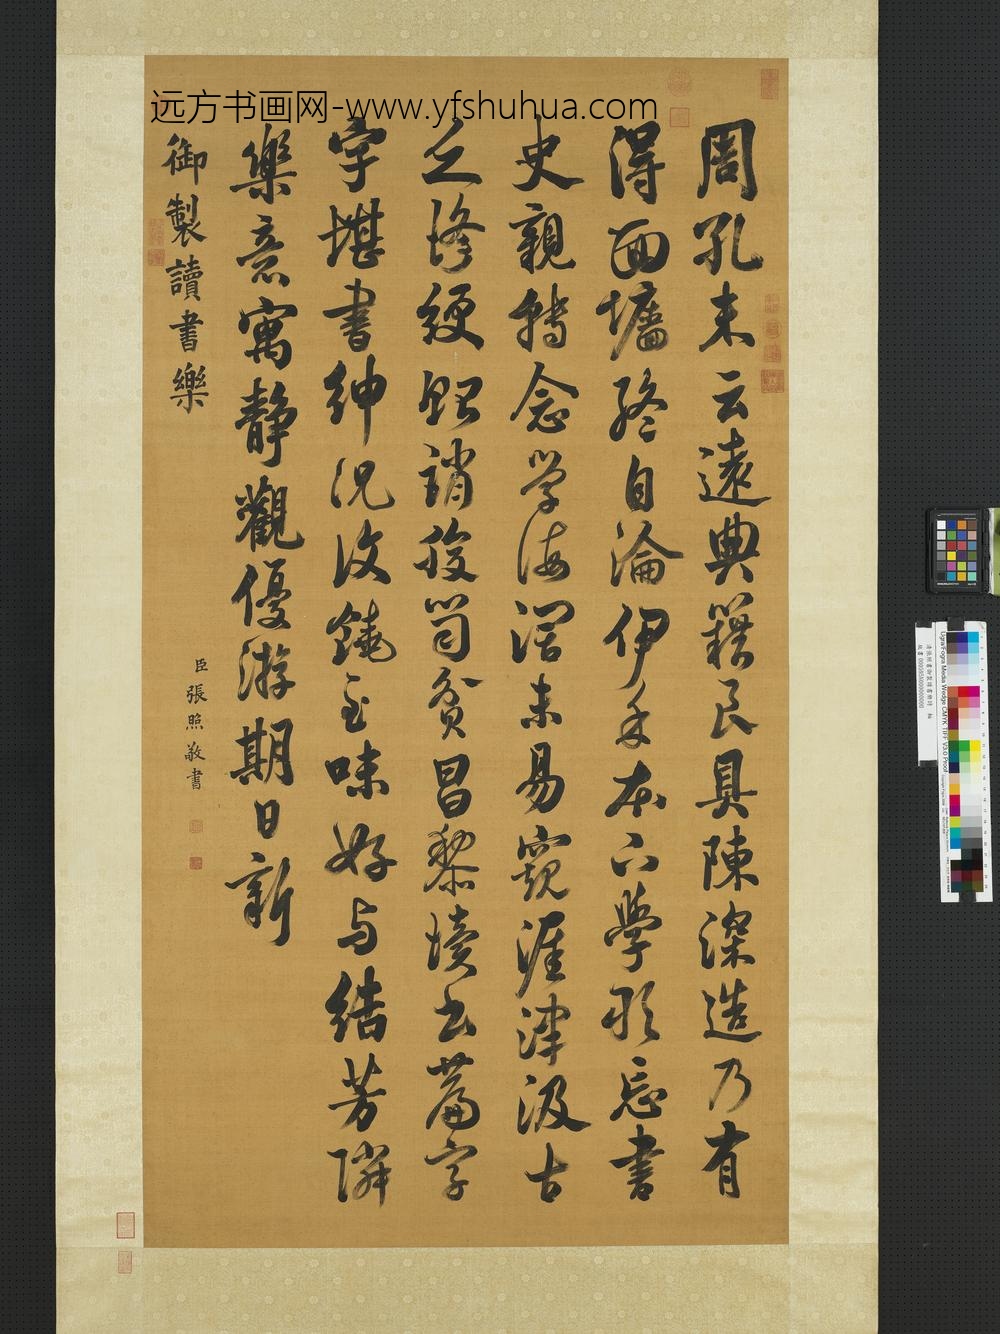 远方书画网-www.yfshuhua.com
周孔未云遠典籍良具陳深造乃有
得面墻終自淪伊余本六學形忘書
史親轉念学海濶未易窺涯津汲古
乏脩綆貽誚腹笥貧昌黎讀書薦字
字堪書紳況汝饒至味好与結芳隣
樂意寓静觀優游期日新
御製讀書樂
臣張照敬書